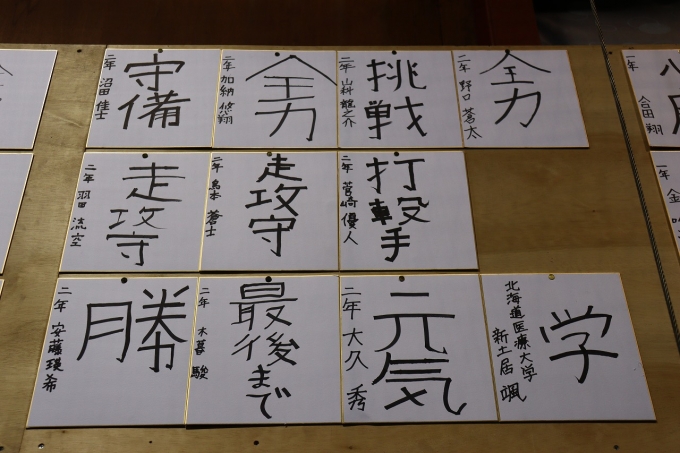 守備
二年 沼田 佳士
全力
二年 加納 悠翔
挑戦
二年 山科 龍之介
全力
二年 野口 蒼太
合田 翔
走攻守
二年 羽田 流空
走攻守
二年 島本 蒼士
打撃手
二年 菅崎 優人
一年 金
勝
二年 安藤 瑛希
最後まで
二年 木暮 駿
元気
二年 大久 秀
学
北海道医療大学
新土居 颯